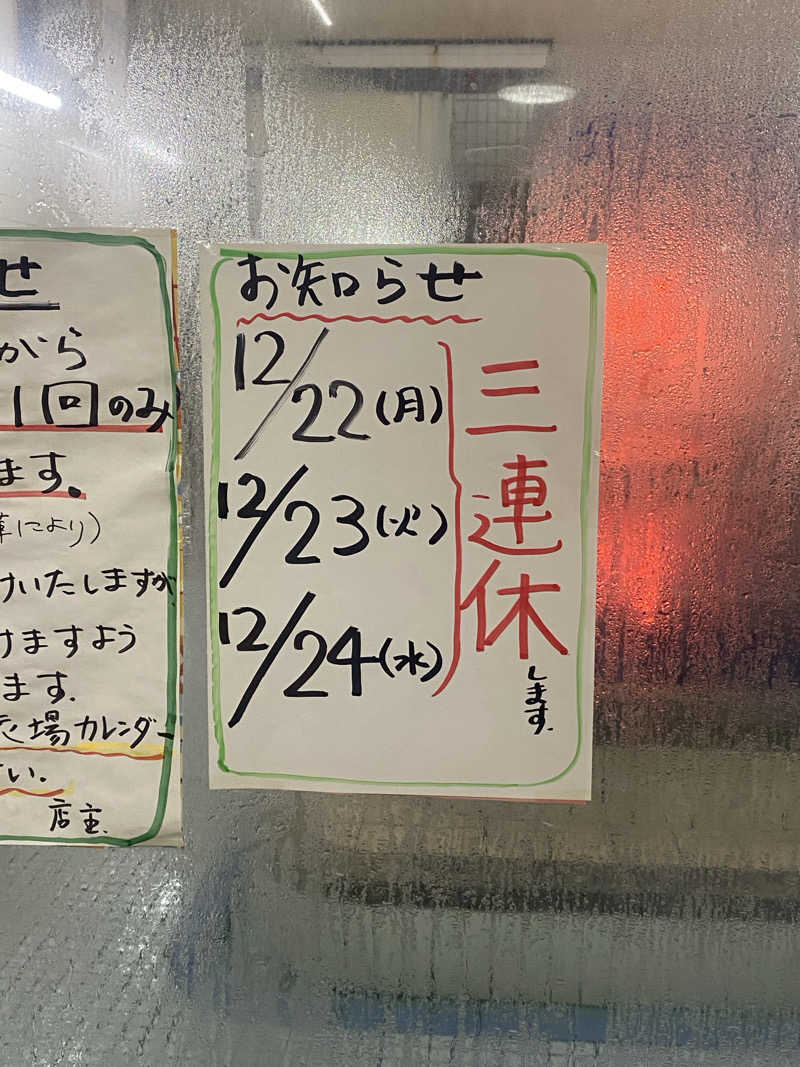 せ
から
1回のみ
ます。
により)
けいたしますが
けますよう
ます.
場カレンダー
い.
店主.
お知らせ
12/22(月)
12/23(火)
12/24(水)
三連休
します.